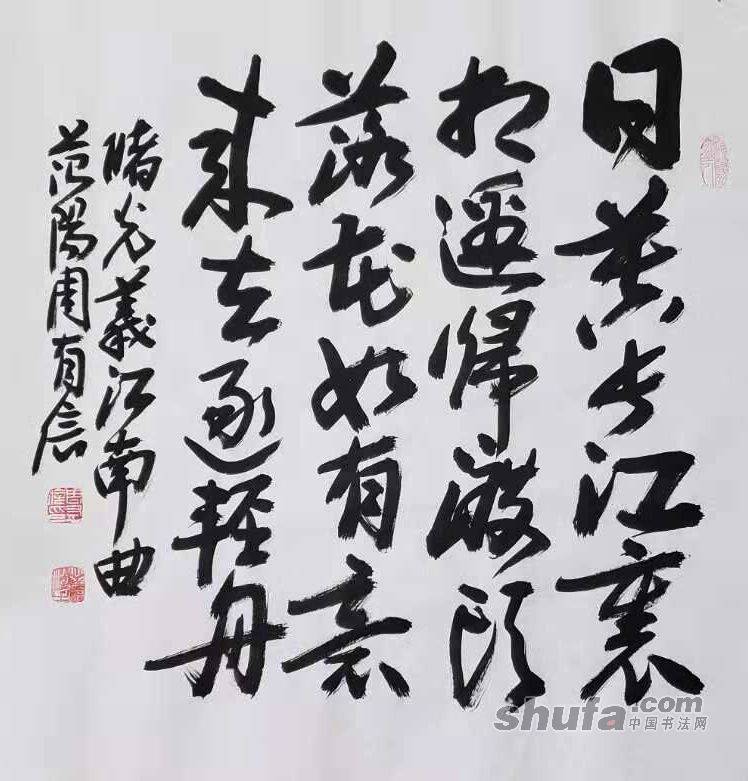 日暮长江裏
相邀歸渡頭
落花如有意
来去逐輕舟
储光羲江南曲
范陽周有信
shufa.com
中国书法网